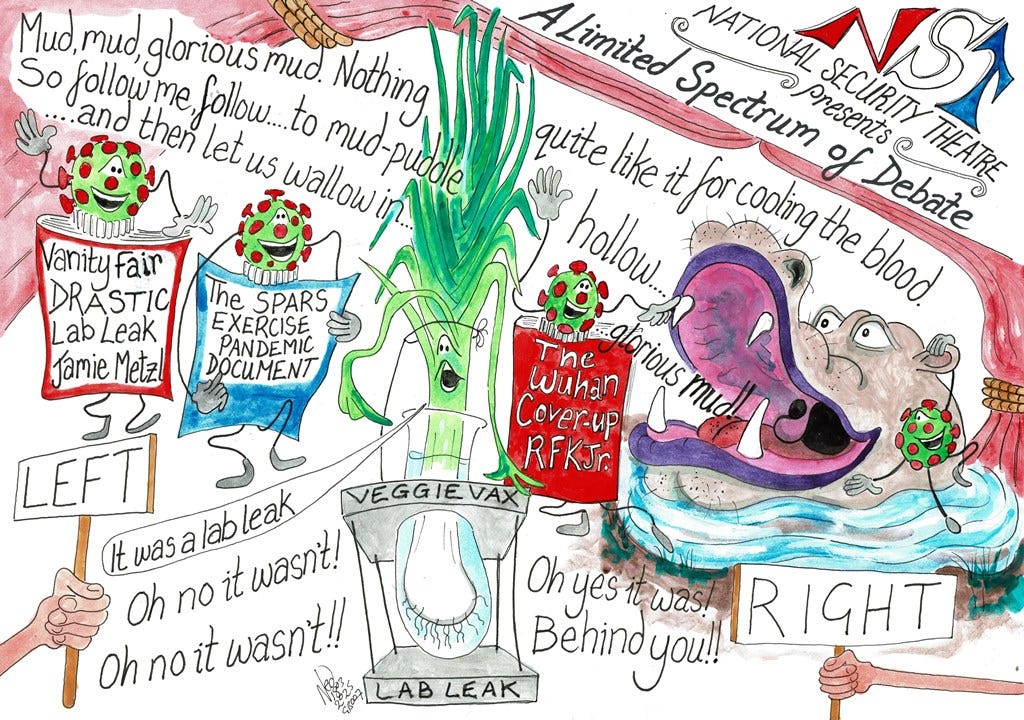 NST
NATIONAL SECURITY THEATRE
presents
A Limited Spectrum of Debate
Mud, mud, glorious mud. Nothing
quite like it for cooling the blood.
So follow me, follow.... to mud-puddle
hollow....
.....and then let us wallow in...
...glorious mud!!
Vanity Fair
DRASTIC
Lab Leak
Jamie Metzl
The SPARS
EXERCISE
PANDEMIC
DOCUMENT
The
Wuhan
Cover-up
RFKJr.
LEFT
It was a lab leak
Oh no it wasn't!
Oh no it wasn't!!
VEGGIE VAX
LAB LEAK
Oh yes it was!
Behind you!!
RIGHT